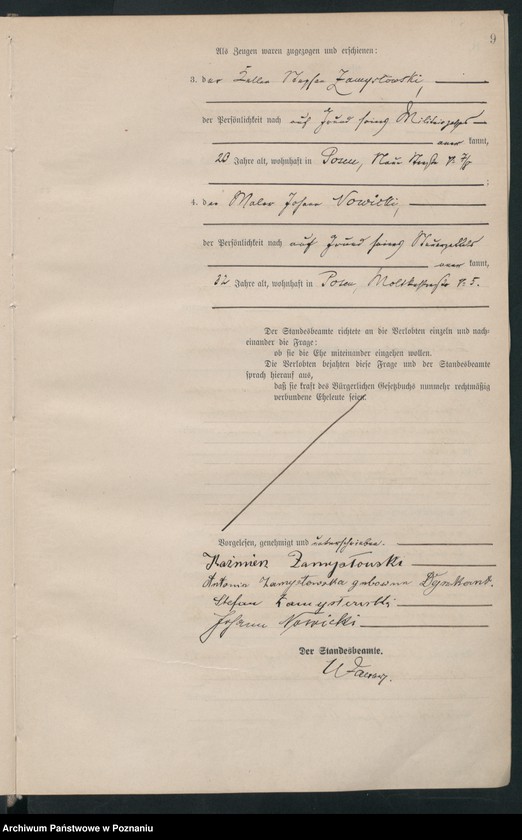 9
Als Zeugen waren zugezogen und erschienen:
3. der Kellner Stephan Zamysłowski,
der Persönlichkeit nach auf Grund seines Militärpasses
anerkannt,
23 Jahre alt, wohnhaft in Posen, Neue Straße № 7/8
;
4. der Maler Johann Nowicki,
der Persönlichkeit nach auf Grund seines Steuerzettels
anerkannt,
32 Jahre alt, wohnhaft in Posen, Moltkestraße № 5.
Der Standesbeamte richtete an die Verlobten einzeln und nach-
einander die Frage:
ob sie die Ehe miteinander eingehen wollen.
Die Verlobten bejahten diese Frage und der Standesbeamte
sprach hierauf aus,
daß sie kraft des Bürgerlichen Gesetzbuchs nunmehr rechtmäßig
verbundene Eheleute seien.
Vorgelesen, genehmigt und unterschrieben.
Kazimierz Zamysłowski
Antonina Zamysłowska geborene
Stefan Zamysłowski
Johann Nowicki
Der Standesbeamte.
Archiwum Państwowe w Poznaniu